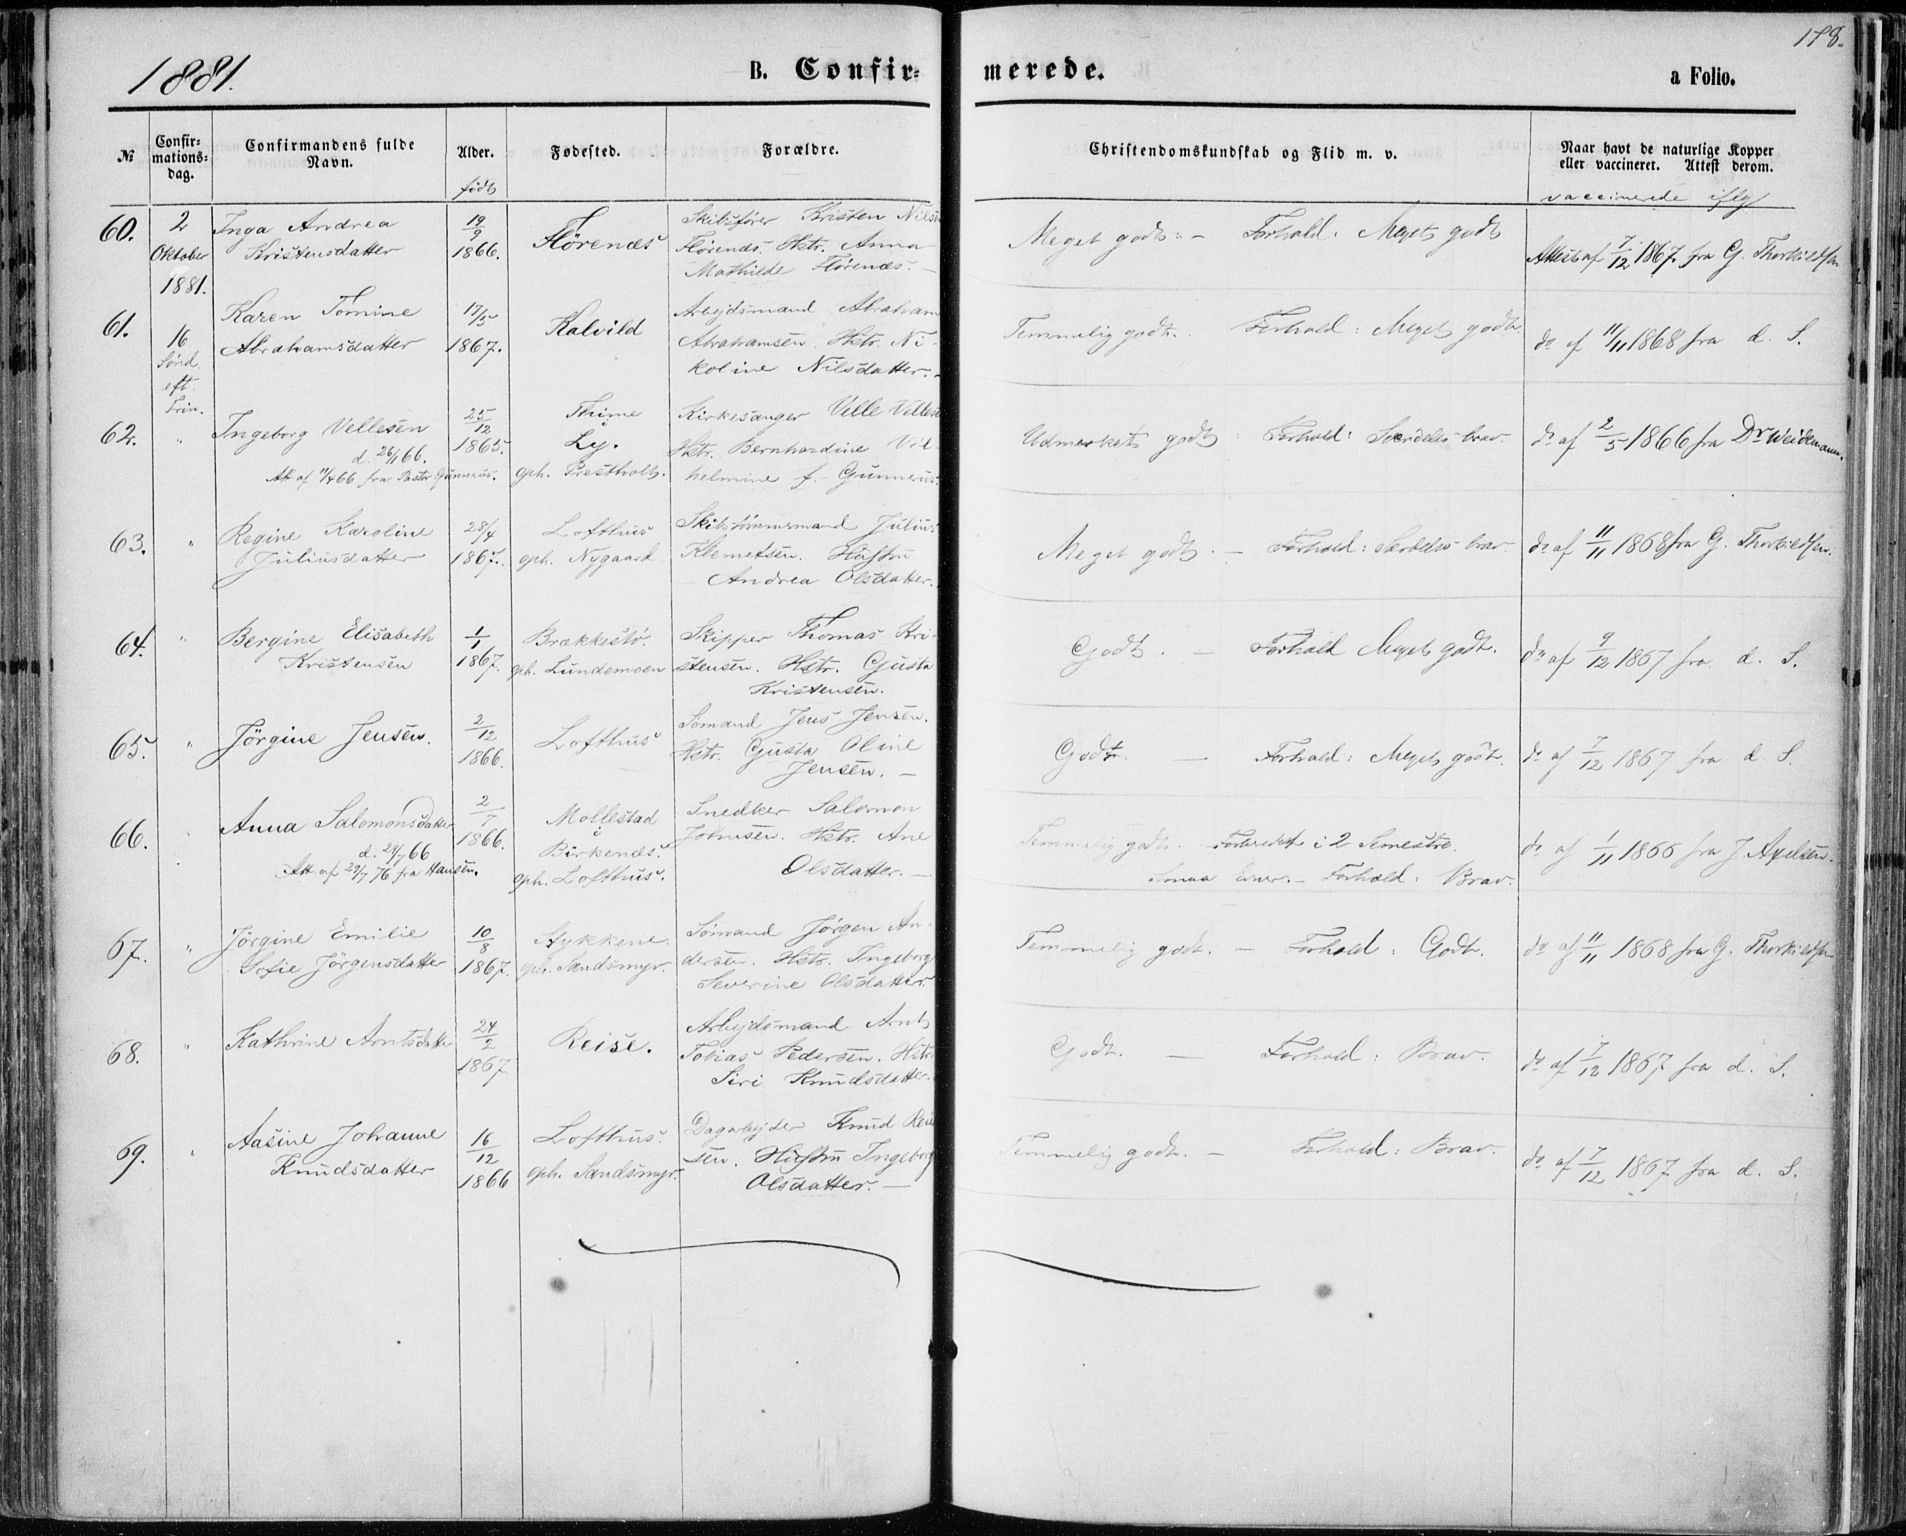 1881.
B. Confirmerede.
a Folio.
178.
№
Confirmations-dag.
Confirmandens fulde Navn.
Alder.
født
Fødested.
Forældre.
Christendomskundskab og Flid m. v.
Naar havt de naturlige Kopper eller vaccineret. Attest derom.
vaccinerede iflg
60.
2
Oktober
1881.
16
Sønd.
eft.
Trin.
Inga Andrea
Kristensdatter
19/9
1866.
Flørenæs
Skibsfører Kristen Nils
Flørenæs. Hstr. Anna
Mathilde Flørenæs. –
Meget godt: – Forhold: Meget godt
Attest af 7/12 1867 fra G. Thorkildsen
61.
Karen Tomine
Abrahamsdatter
17/5
1867.
Kalvild
Arbejdsmand Abraham
Abrahamsen. Hstr. Ni-
koline Nilsdatter. –
Temmelig godt. Forhold: Meget godt
do af 11/11 1868 fra d. S.
62.
"
Ingeborg Vellesen
d. 26/1 66.
Att af 11/4 66 fra Pastor Gunnerus.
25/12
1865.
Thime
Ly.
oph. Prestholt.
Kirkesanger Velle Velles
Hstr. Bernhardine Vil-
helmine f. Gunnerus.
Udmerket godt: Forhold: Særdeles brav.
do af 2/5 1866 fra Dr Weidemann.
63.
"
Regine Karoline
Juliusdatter
28/4
1867.
Lofthus
oph. Nygaard
Skibstømmermand Julius
Klemetsen. Hustru
Andrea Olsdatter.
Meget godt. – Forhold: Særdeles brav.
do af 11/11 1868 fra G. Thorkildsen.
64.
"
Bergine Elisabeth
Kristensen
1/1
1867.
Brækkestø.
oph. Lundemoen
Skipper Thomas Kri-
stensen. Hstr. Gusta
Kristensen.
Godt. – Forhold Meget godt.
do af 9/12 1867 fra d. S.
65.
"
Jörgine Jensen.
2/12
1866.
Lofthus
Sømand Jens Jensen.
Hstr. Gusta Oline
Jensen. –
Godt. – Forhold: Meget godt.
do af 7/12 1867 fra d. S.
66.
"
Anna Salomonsdatter
d. 24/7 66
Att af 29/7 76 fra Hansen.
2/7
1866.
Mollestad
i
Birkenæs.
oph. Lofthus.
Snedker Salomon
Johnsen. Hstr. Ane
Olsdatter. –
Temmelig godt. Forberedet i 2 Semestre.
Smaa Evner. – Forhold: Brav.
do af 1/11 1866 fra J. Axelsen.
67.
"
Jörgine Emilie
Sofie Jörgensdatter
10/8
1867.
Stykkene
oph. Sandsmyr.
Sømand Jørgen An-
dersen. Hstr. Ingeborg
Severine Olsdatter.
Temmelig godt. – Forhold: Godt.
do af 11/11 1868 fra G. Thorkildsen
68.
"
Kathrine Arntsdatter
24/2
1867
Reise.
Arbejdsmand Arnt
Tobias Pedersen. Hstr.
Siri Knudsdatter.
Godt. – Forhold: Brav.
do af 7/12 1867 fra d. S.
69.
"
Aasine Johanne
Knudsdatter
16/12
1866
Lofthus.
oph. Sandsmyr.
Dagarbejder Knud
sen. Hustru Ingeborg
Olsdatter. –
Temmelig godt. – Forhold: Brav.
do af 7/12 1867 fra d. S.